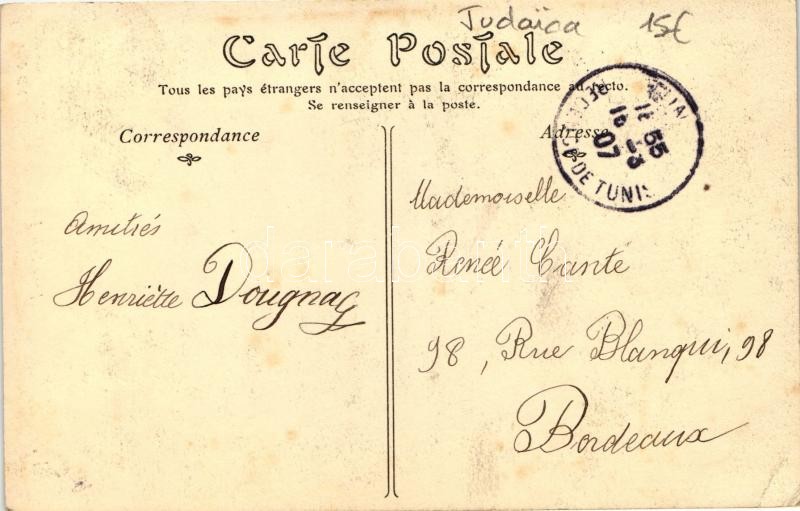 Judaïca 15€
Carte Postale
Tous les pays étrangers n'acceptent pas la correspondance au recto.
Se renseigner à la poste.
Correspondance
Adresse
16 55
16 -3
07
CE DE TUNIS
Mademoiselle
Amitiés
Renée Cante
Henriette Dougnac
98, Rue Blanqui, 98
Bordeaux
darabanth